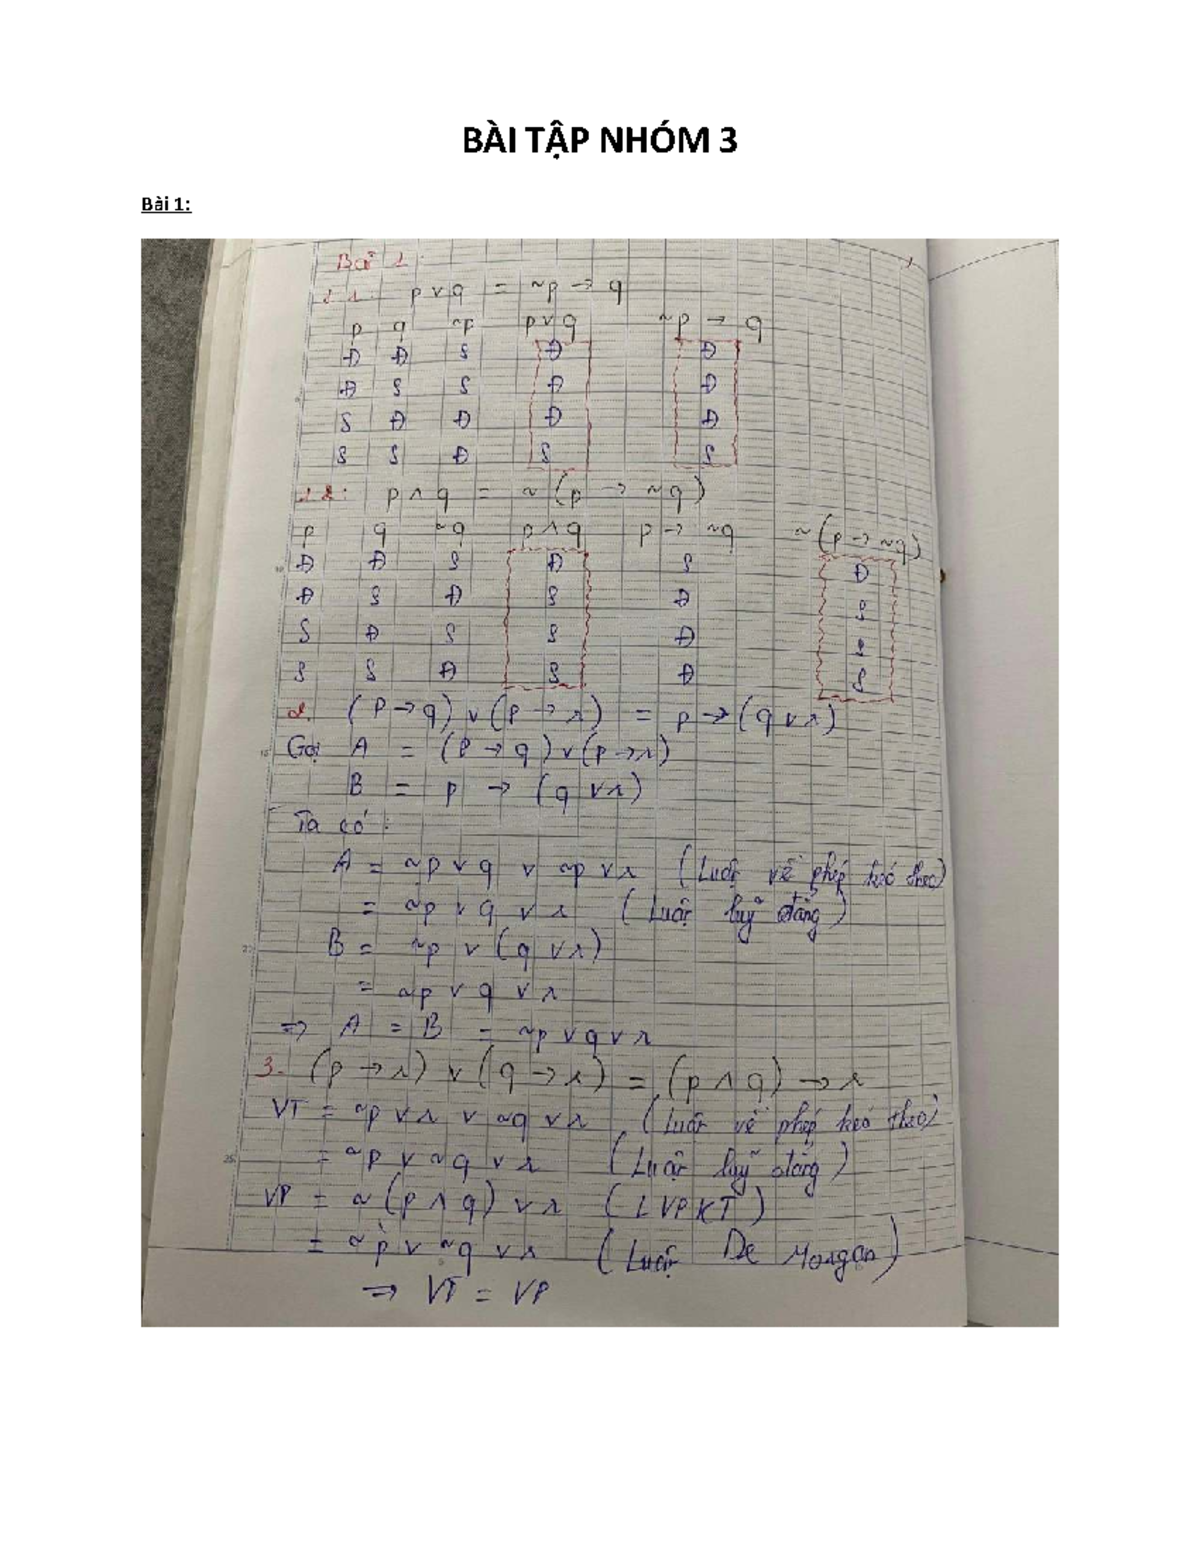 BÀI TẬP NHÓM 3
Bài 1:
Bài 1:
1.1. p ∨ q = ~p → q
p q ~p p ∨ q ~p → q
Đ Đ S Đ Đ
Đ S S Đ Đ
S Đ Đ Đ Đ
S S Đ S S
1.2: p ∧ q = ~(p → ~q)
p q ~q p ∧ q p → ~q ~(p → ~q)
Đ Đ S Đ S Đ
Đ S Đ S Đ S
S Đ S S Đ S
S S Đ S Đ S
2. (p → q) ∨ (p → r) = p → (q ∨ r)
Gọi A = (p → q) ∨ (p → r)
B = p → (q ∨ r)
Ta có:
A = ~p ∨ q ∨ ~p ∨ r (Luật về phép kéo theo)
= ~p ∨ q ∨ r (Luật luỹ đẳng)
B = ~p ∨ (q ∨ r)
= ~p ∨ q ∨ r
⇒ A = B = ~p ∨ q ∨ r
3. (p → r) ∨ (q → r) = (p ∧ q) → r
VT = ~p ∨ r ∨ ~q ∨ r (Luật về phép kéo theo)
= ~p ∨ ~q ∨ r (Luật luỹ đẳng)
VP = ~(p ∧ q) ∨ r (LVPKT)
= ~p ∨ ~q ∨ r (Luật De Morgan)
⇒ VT = VP